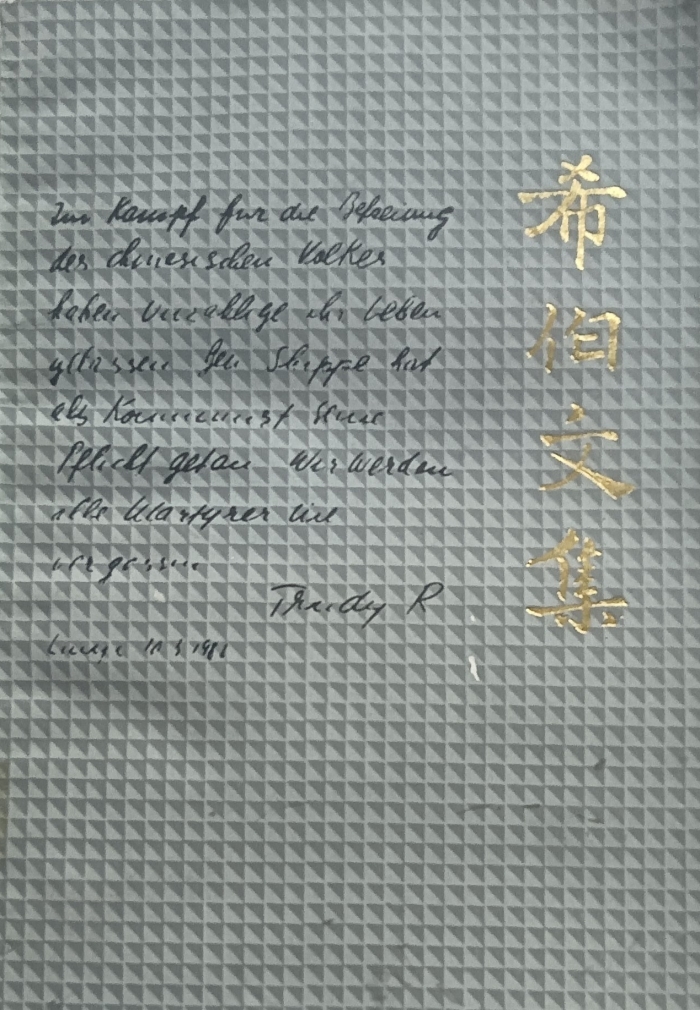 Im Kampf für die Befreiung
des chinesischen Volkes
haben unzählige ihr Leben
gelassen Shippe hat
als Kommunist seine
Pflicht getan Wir werden
alle Märtyrer nie
vergessen
Trudy R
希伯文集